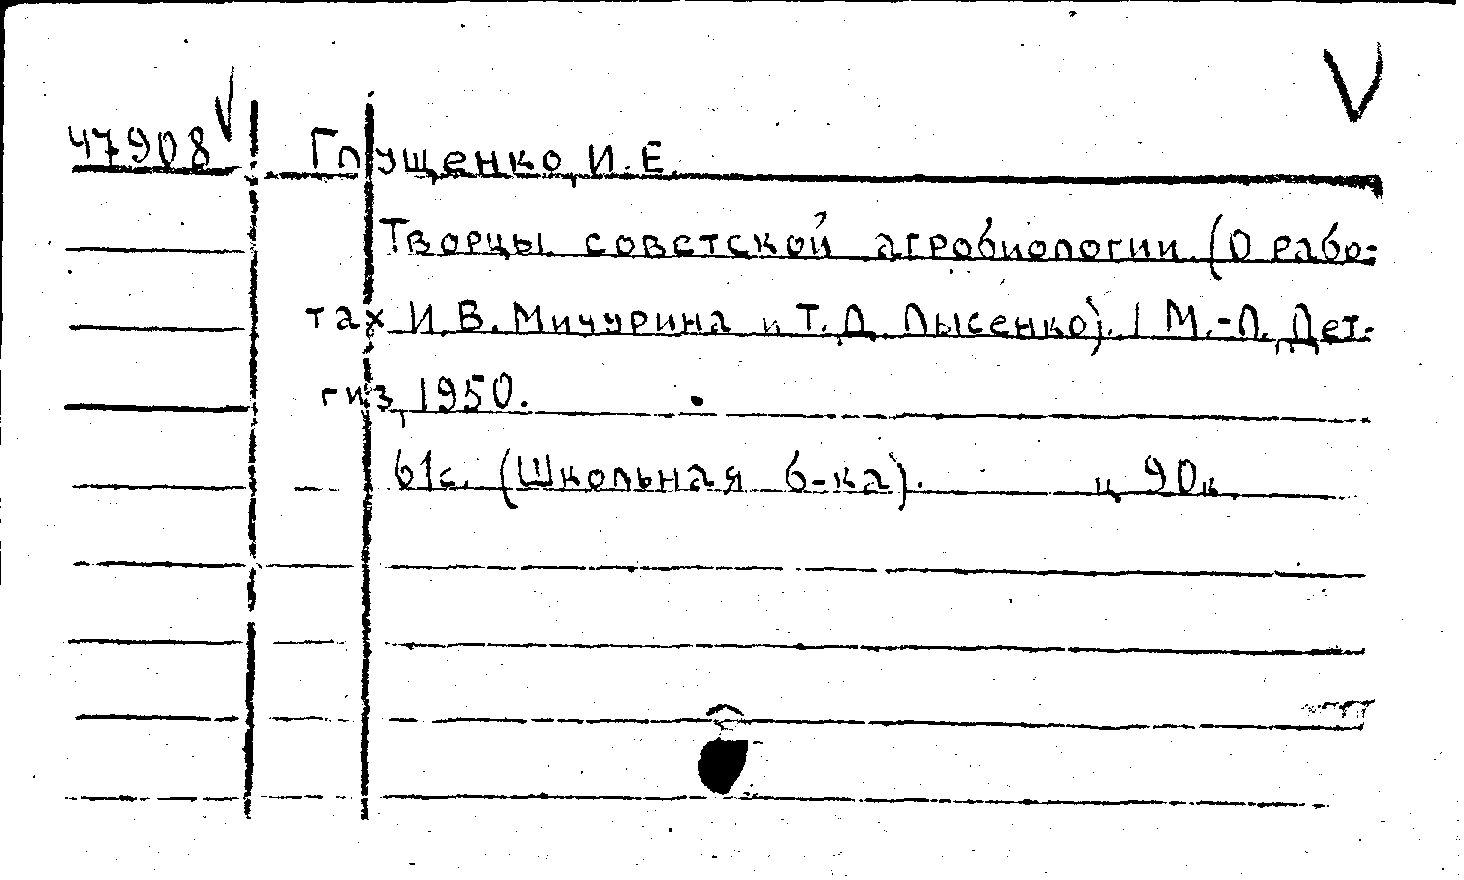 47908 Глущенко, И. Е.
Творцы советской агробиологии. (О рабо-
тах И. В. Мичурина и Т. Д. Лысенко). | М.-Л. Дет-
гиз, 1950.
61с. (Школьная б-ка). ц. 90к.